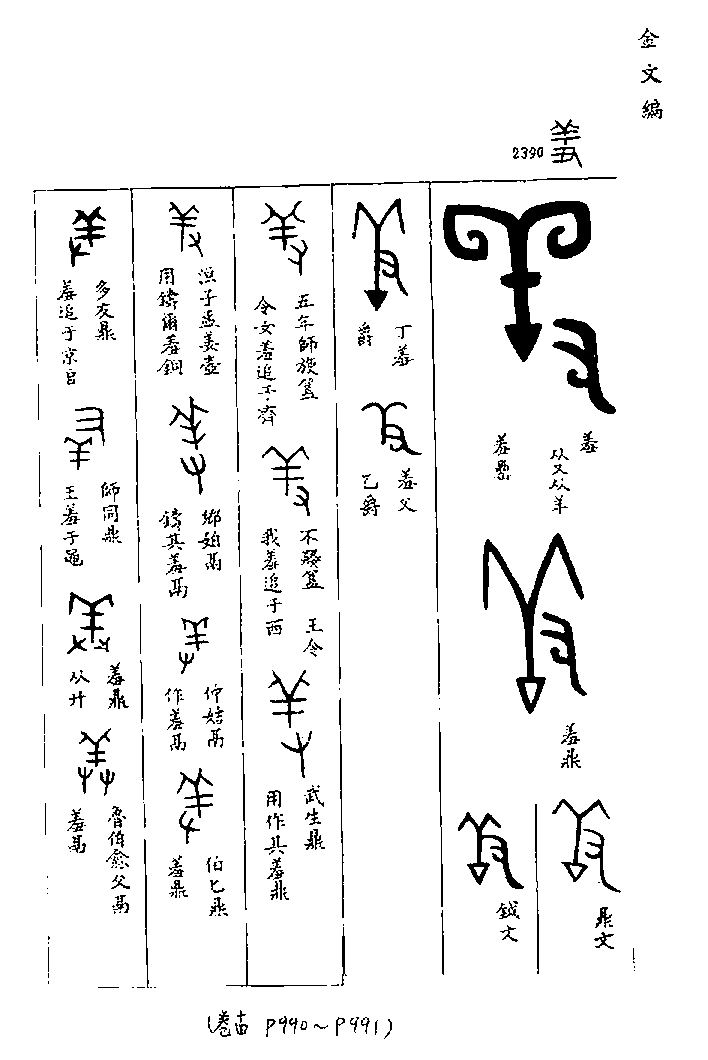 金文編
羞
2390
羞
从又从羊
羞罍
羞鼎
鼎文
鉞文
丁羞
爵
羞父
乙爵
五年師旋簋
令女羞追于齊
不𡢁簋 王令
我羞追于西
武生鼎
用作其羞鼎
㵒子孟姜壺
用鑄爾羞鈃
鄉始鬲
鑄其羞鬲
伯姞鬲
作羞鬲
伯匕鼎
羞鼎
多友鼎
羞追于京𠂤
師同鼎
王羞于黽
羞鼎
从廾
魯伯愈父鬲
羞鬲
(卷十四 P990~P991)